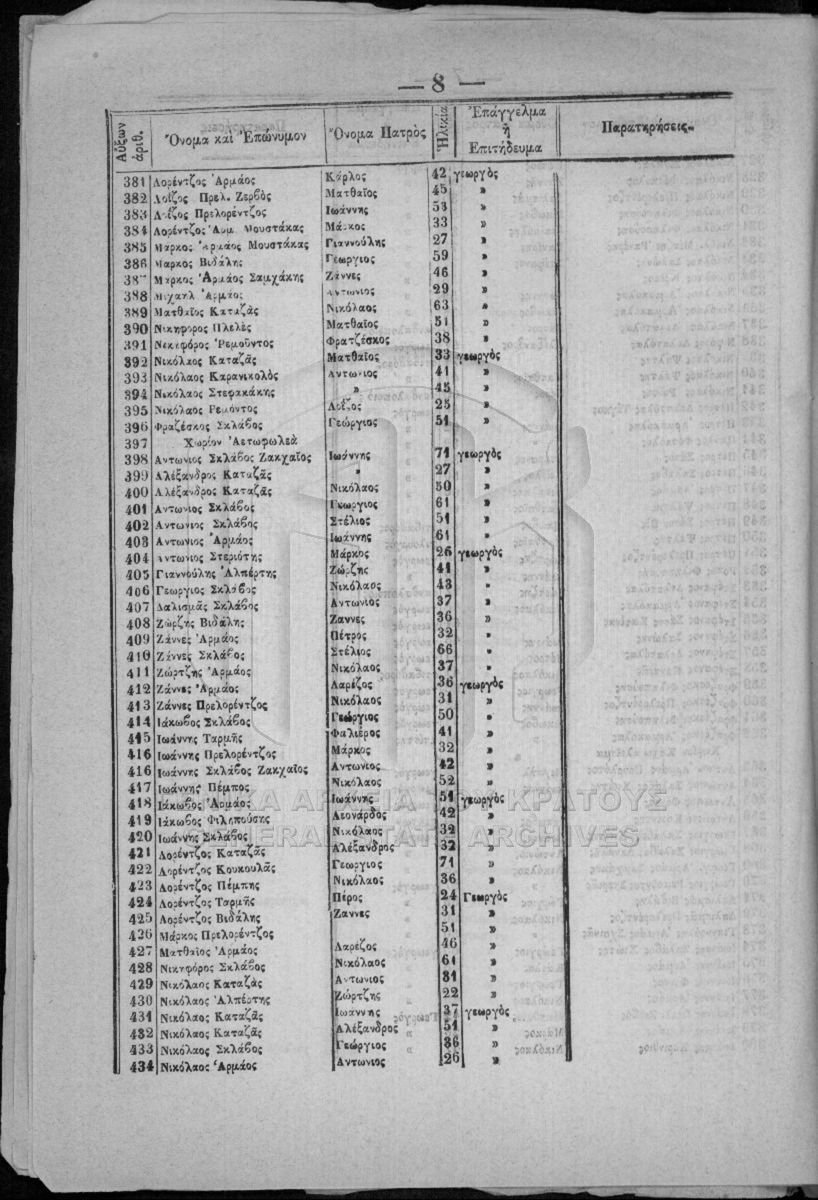 — 8 —
Αὔξων ἀριθ. Ὄνομα καὶ Ἐπώνυμον Ὄνομα Πατρὸς Ἡλικία Ἐπάγγελμα ἢ Ἐπιτήδευμα Παρατηρήσεις
381 Λορέντζος Ἀρμάος Κάρλος 42 γεωργὸς
382 Λοΐζος Πρελ. Ζερβὸς Ματθαῖος 45 »
383 Λοΐζος Πρελορέντζος Ιωάννης 53 »
384 Λορέντζος Ἀρμ. Μουστάκας Μάρκος 33 »
385 Μαρκος Ἀρμάος Μουστάκας Γιαννούλης 27 »
386 Μαρκος Βιδάλης Γεωργιος 59 »
387 Μάρκος Ἀρμάος Σαμχάκης Ζάννες 46 »
388 Μιχαὴλ Ἀρμάος Αντωνιος 29 »
389 Ματθαῖος Καταζᾶς Νικόλαος 63 »
390 Νικηφορος Πλελὲς Ματθαῖος 51 »
391 Νεκηφόρος Ῥεμοῦντος Φρατζέσκος 38 »
392 Νικόλαος Καταζᾶς Ματθαῖος 33 γεωργὸς
393 Νικόλαος Καρανικολὸς Αντωνιος 41 »
394 Νικόλαος Στεφακάκης » 45 »
395 Νικόλαος Ρεμόντος Λοΐζος 25 »
396 Φραζέσκος Σκλάβος Γεώργιος 51 »
397 Χωρίον Ἀετωφωλεὰ
398 Αντωνιος Σκλάβος Ζακχαῖος Ιωάννης 71 γεωργὸς
399 Αλέξανδρος Καταζᾶς » 27 »
400 Αλέξανδρος Καταζᾶς Νικόλαος 50 »
401 Αντωνιος Σκλάβος Γεωργιος 61 »
402 Αντωνιος Σκλάβος Στέλιος 51 »
403 Αντωνιος Ἀρμάος Ιωάννης 61 »
404 Αντωνιος Στεριότης Μάρκος 26 γεωργὸς
405 Γιαννούλης Ἀλπέρτης Ζώρζης 41 »
406 Γεωργιος Σκλάβος Νικόλαος 43 »
407 Δαλισμᾶς Σκλάβος Αντωνιος 37 »
408 Ζώρζης Βιδάλης Ζαννες 36 »
409 Ζάννες Ἀρμάος Πέτρος 32 »
410 Ζάννες Σκλάβος Στέλιος 66 »
411 Ζώρτζης Ἀρμάος Νικόλαος 37 »
412 Ζάννες Ἀρμάος Λαρέζος 36 γεωργὸς
413 Ζάννες Πρελορέντζος Νικόλαος 31 »
414 Ιάκωβος Σκλάβος Γεώργιος 50 »
415 Ιωάννης Ταρμῆς Φαλιέρος 41 »
416 Ιωάννης Πρελορέντζος Μάρκος 32 »
416 Ιωάννης Σκλάβος Ζακχαῖος Αντωνιος 42 »
417 Ιωάννης Πέμπος Νικόλαος 52 »
418 Ιάκωβος Ἀρμάος Ιωάννης 51 γεωργὸς
419 Ιάκωβος Φιληπούσης Λεονάρδος 42 »
420 Ιωάννης Σκλάβος Νικόλαος 32 »
421 Λορέντζος Καταζᾶς Αλέξανδρος 32 »
422 Λορέντζος Κουκουλᾶς Γεωργιος 71 »
423 Λορέντζος Πέμπης Νικόλαος 36 »
424 Λορέντζος Ταρμῆς Πέρος 24 Γεωργὸς
425 Λορέντζος Βιδάλης Ζαννες 31 »
426 Μάρκος Πρελορέντζος 51 »
427 Ματθαῖος Ἀρμάος Λαρέζος 46 »
428 Νικηφόρος Σκλάβος Νικόλαος 61 »
429 Νικόλαος Καταζᾶς Αντωνιος 31 »
430 Νικόλαος Ἀλπέρτης Ζώρτζης 22 »
431 Νικόλαος Καταζᾶς Ιωάννης 37 γεωργὸς
432 Νικόλαος Καταζᾶς Αλέξανδρος 51 »
433 Νικόλαος Σκλάβος Γεώργιος 36 »
434 Νικόλαος Ἀρμάος Αντωνιος 26 »
ΓΕΝΙΚΑ ΑΡΧΕΙΑ ΤΟΥ ΚΡΑΤΟΥΣ
GENERAL STATE ARCHIVES